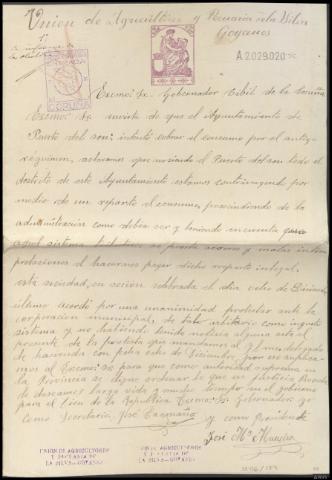 Union de Agricultores y Pecuaria de la Silva
Goyanes
A.2.029.020
CORUÑA
Excmo. Sr. Gobernador Civil de la Coruña
Excmo. Sr. en vista de que el Ayuntamiento de
Puerto del Son intenta cobrar el consumo por el antiguo
regimen, actuamos que no siendo el Puerto del Son todo el
distrito de este Ayuntamiento estamos contribuyendo por
medio de un reparto el consumo, prescindiendo de la
administración como debia ser y teniendo en cuenta que
aquel sistema se presta a y malas inter
pretaciones al hacernos pagar dicho reparto integral,
esta sociedad, en secion celebrada el dia ocho de Diciembre
ultimo acordó por una unanimidad protestar ante la
corporación municipal, de tan arbitrario como injusto
sistema y no habiendo tenido noticia alguna asta el
presente de la protesta que mandamos al Sr. delegado
de hacienda con fecha ocho de Diciembre, por no suplica
mos al Excmo. Sr. para que como autoridad suprema en
la Provincia se digne ordenar lo que en justicia proceda
le deseamos largo vida y mucho tiempo en el gobierno
para el bien de la Republica Excmo. Sr. Gobernador
como Secretario José Caamaño y como Presidente
José Mª
UNION DE AGRICULTORES
Y PECUARIA DE
LA SILVA-GOYANES
UNION DE AGRICULTORES
Y PECUARIA DE
LA SILVA-GOYANES